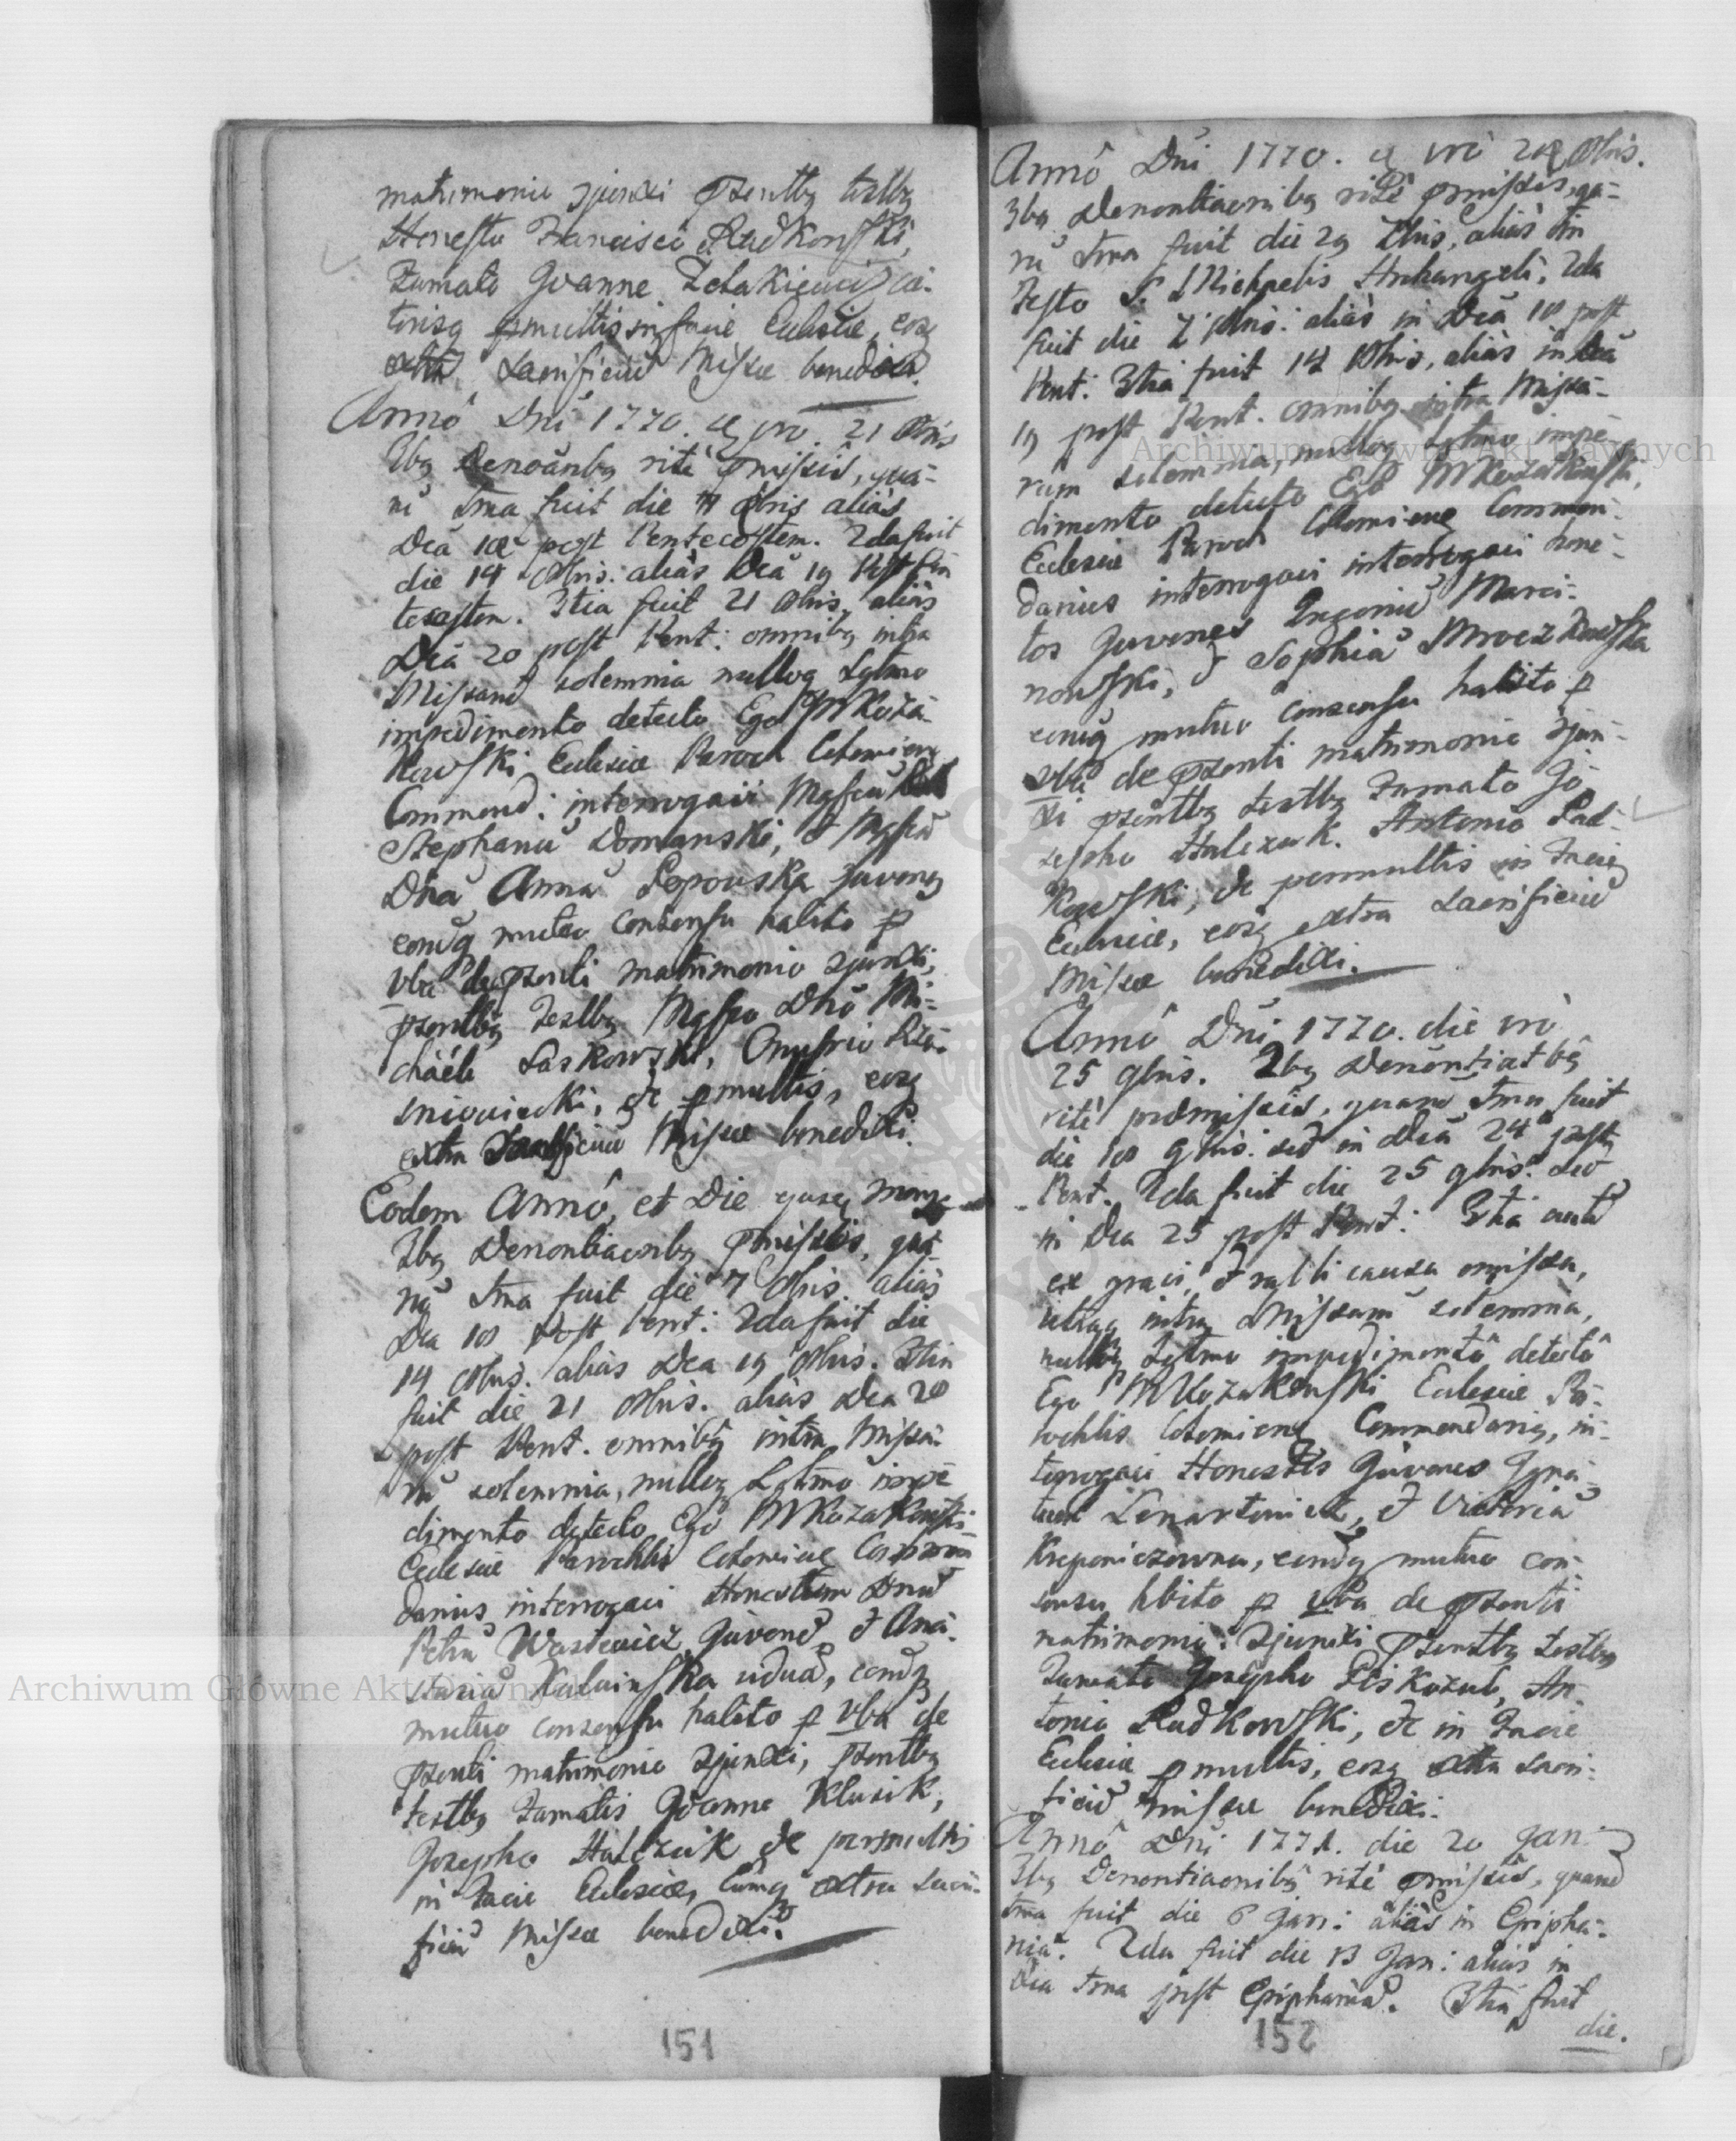 matrimonio zjunxi pzentbg testbg
Honesto Francisci Radkowski,
Famato Joanne
pmultis in facie Ecclesiae, eosq
extra Sacrificiu Missae benedixi.
Anno Dni 1770. vro. 21 8bris
3bg Denoanbg rite pmissis, qua-
ru Ima fuit die 7 8bris alias
Dca 18 post Pentecostem. 2da fuit
die 14 8bris: alias Dca 19 Post Pen
tecosten. 3tia fuit 21 8bris, alias
Dca 20 post Pent: omnibg intra
Missarũ solemnia nullog Lgtmo
impedimento detecto Ego M Koza-
kowski Ecclesiae Paroch Cotoniens
Commend: interrogavi Mgfcu
Stephanu Domanski, & Mgfca
Dna Anna Popowska Juvenes
eorug mutuo consensu habito p
Vba de pzenti matrimonio zjunxi,
pzentbg Testbg Mgfco Dno Mi-
chaele Laskowski, Onufrio
&c pmultis, eosq
extra Sacrificiu Missae benedixi.
Eodem Anno, et Die ejusq mens
3bg Denontiaonbg pmissis, qua-
ru Ima fuit die 7 8bris. alias
Dca 18 Post Pent: 2da fuit die
14 8bris. alias Dca 19 8bris. 3tia
fuit die 21 8bris. alias Dca 20
post Pent. omnibg intra Missa-
ru solemnia, nullog Lgtmo impe
dimento detecto Ego M Kozakowski
Ecclesiae Parochlis Cotoniens Commen
darius interrogavi Honestum Dnu
Petru Wasiewicz Juvene, & Ana-
stasia viduã, eorug
mutuo consensu habito p Vba de
pzenti matrimonio zjunxi, pzentbg
testbg Famatis Joanne Klusik,
Josepho Halczuk &c permultis
in Facie Ecclesiae, eosq extra Sacri-
ficiu Missae benedixi.
151
Anno Dni 1770. vro 28 8bris.
3bg Denontiaonibg rite pmissis, qa-
ru Ima fuit die 29 7bris, alias in
Festo S. Michaelis Archangeli, 2da
fuit die 7 8bris: alias in Dca 18 post
Pent: 3tia fuit 14 8bris, alias in Dca
19 post Pent. omnibg intra Missa-
rum solemnia, nullog Lgtmo impe-
dimento detecto Ego M Kozakowski,
Ecclesiae Paroch Cotoniens Commen-
darius interrogavi interrogavi hone-
tos Juvenes Gregoriu Marci-
nowski, & Sophia Mroczkowska
eorug mutuo consensu habito p
Vba de pzenti matrimonio zjun-
xi pzentbg testbg Famato Jo-
sepho Halczuk. Antonio Rad-
kowski, &c permultis in Facie
Ecclesiae, eosq extra Sacrificiu
Missae benedixi.
Anno Dni 1770. die vro
25 9bris. 2bg Denontiatbg
rite praemissis, quaru Ima fuit
die 18 9bris. seu in Dca 24 post
Pent. 2da fuit die 25 9bris. seu
in Dca 25 post Pent: 3tia aute
ex & causa omissa,
utraq intra Missam solemnia,
nullog Lgtmo impedimento detecto
Ego M Kozakowski Ecclesiae Pa-
rochlis Cotoniens Commendarig, in-
terrogavi Honestos Juvenes Igna-
tium Lenartowicz, & Victoria
eorug mutuo con-
sensu hbito p Vba de pzenti
matrimonio zjunxi pzentbg testbg
Famato Josepho Piskozub, An-
tonio Radkowski, &c in Facie
Ecclesiae pmultis, eosq extra Sacri-
ficiu Missae benedixi.
Anno Dni 1771. die 20 Jan:
3bg Denontiaonibg rite pmissis, quaru
Ima fuit die 6 Jan: alias in Epipha-
nia. 2da fuit die 13 Jan: alias in
Dca Ima post Epiphania. 3tia fuit
die.
152
Archiwum Główne Akt Dawnych
Archiwum Główne Akt Dawnych